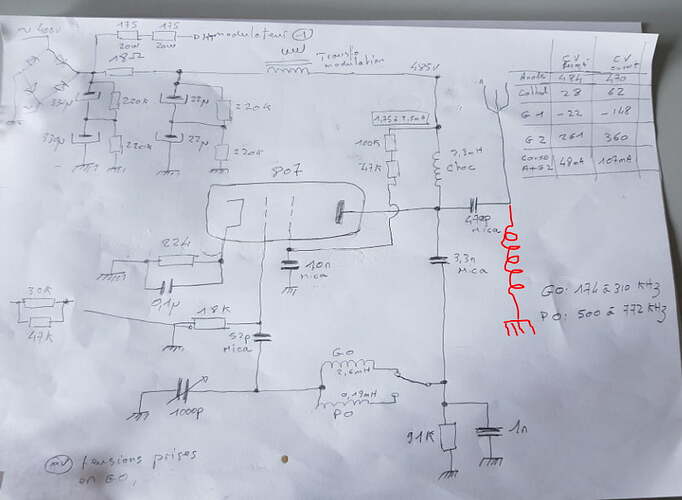 ~ 400V
175
20W
175
20W
DHT modulateur 1
18Ω
Transfo
modulation
485V
33µ
220K
22µ
220K
330µ
220K
22µ
220K
C.V
fermé
C.V
ouvert
Anode 484 470
Cathod 28 62
G1 -22 -148
G2 261 360
Conso
A+G2 48mA 107mA
1,75 à 2,5mA
100K
47K
2,3mH
Choc
807
470p
Mica
22k
10n
Mica
3,3n
Mica
GO: 174 à 310 KHz
PO: 500 à 772 KHz
0,1µ
30K
47K
18K
52p
Mica
GO
2,6mH
0,19mH
PO
1000p
91K
1n
tensions prises
en GO,